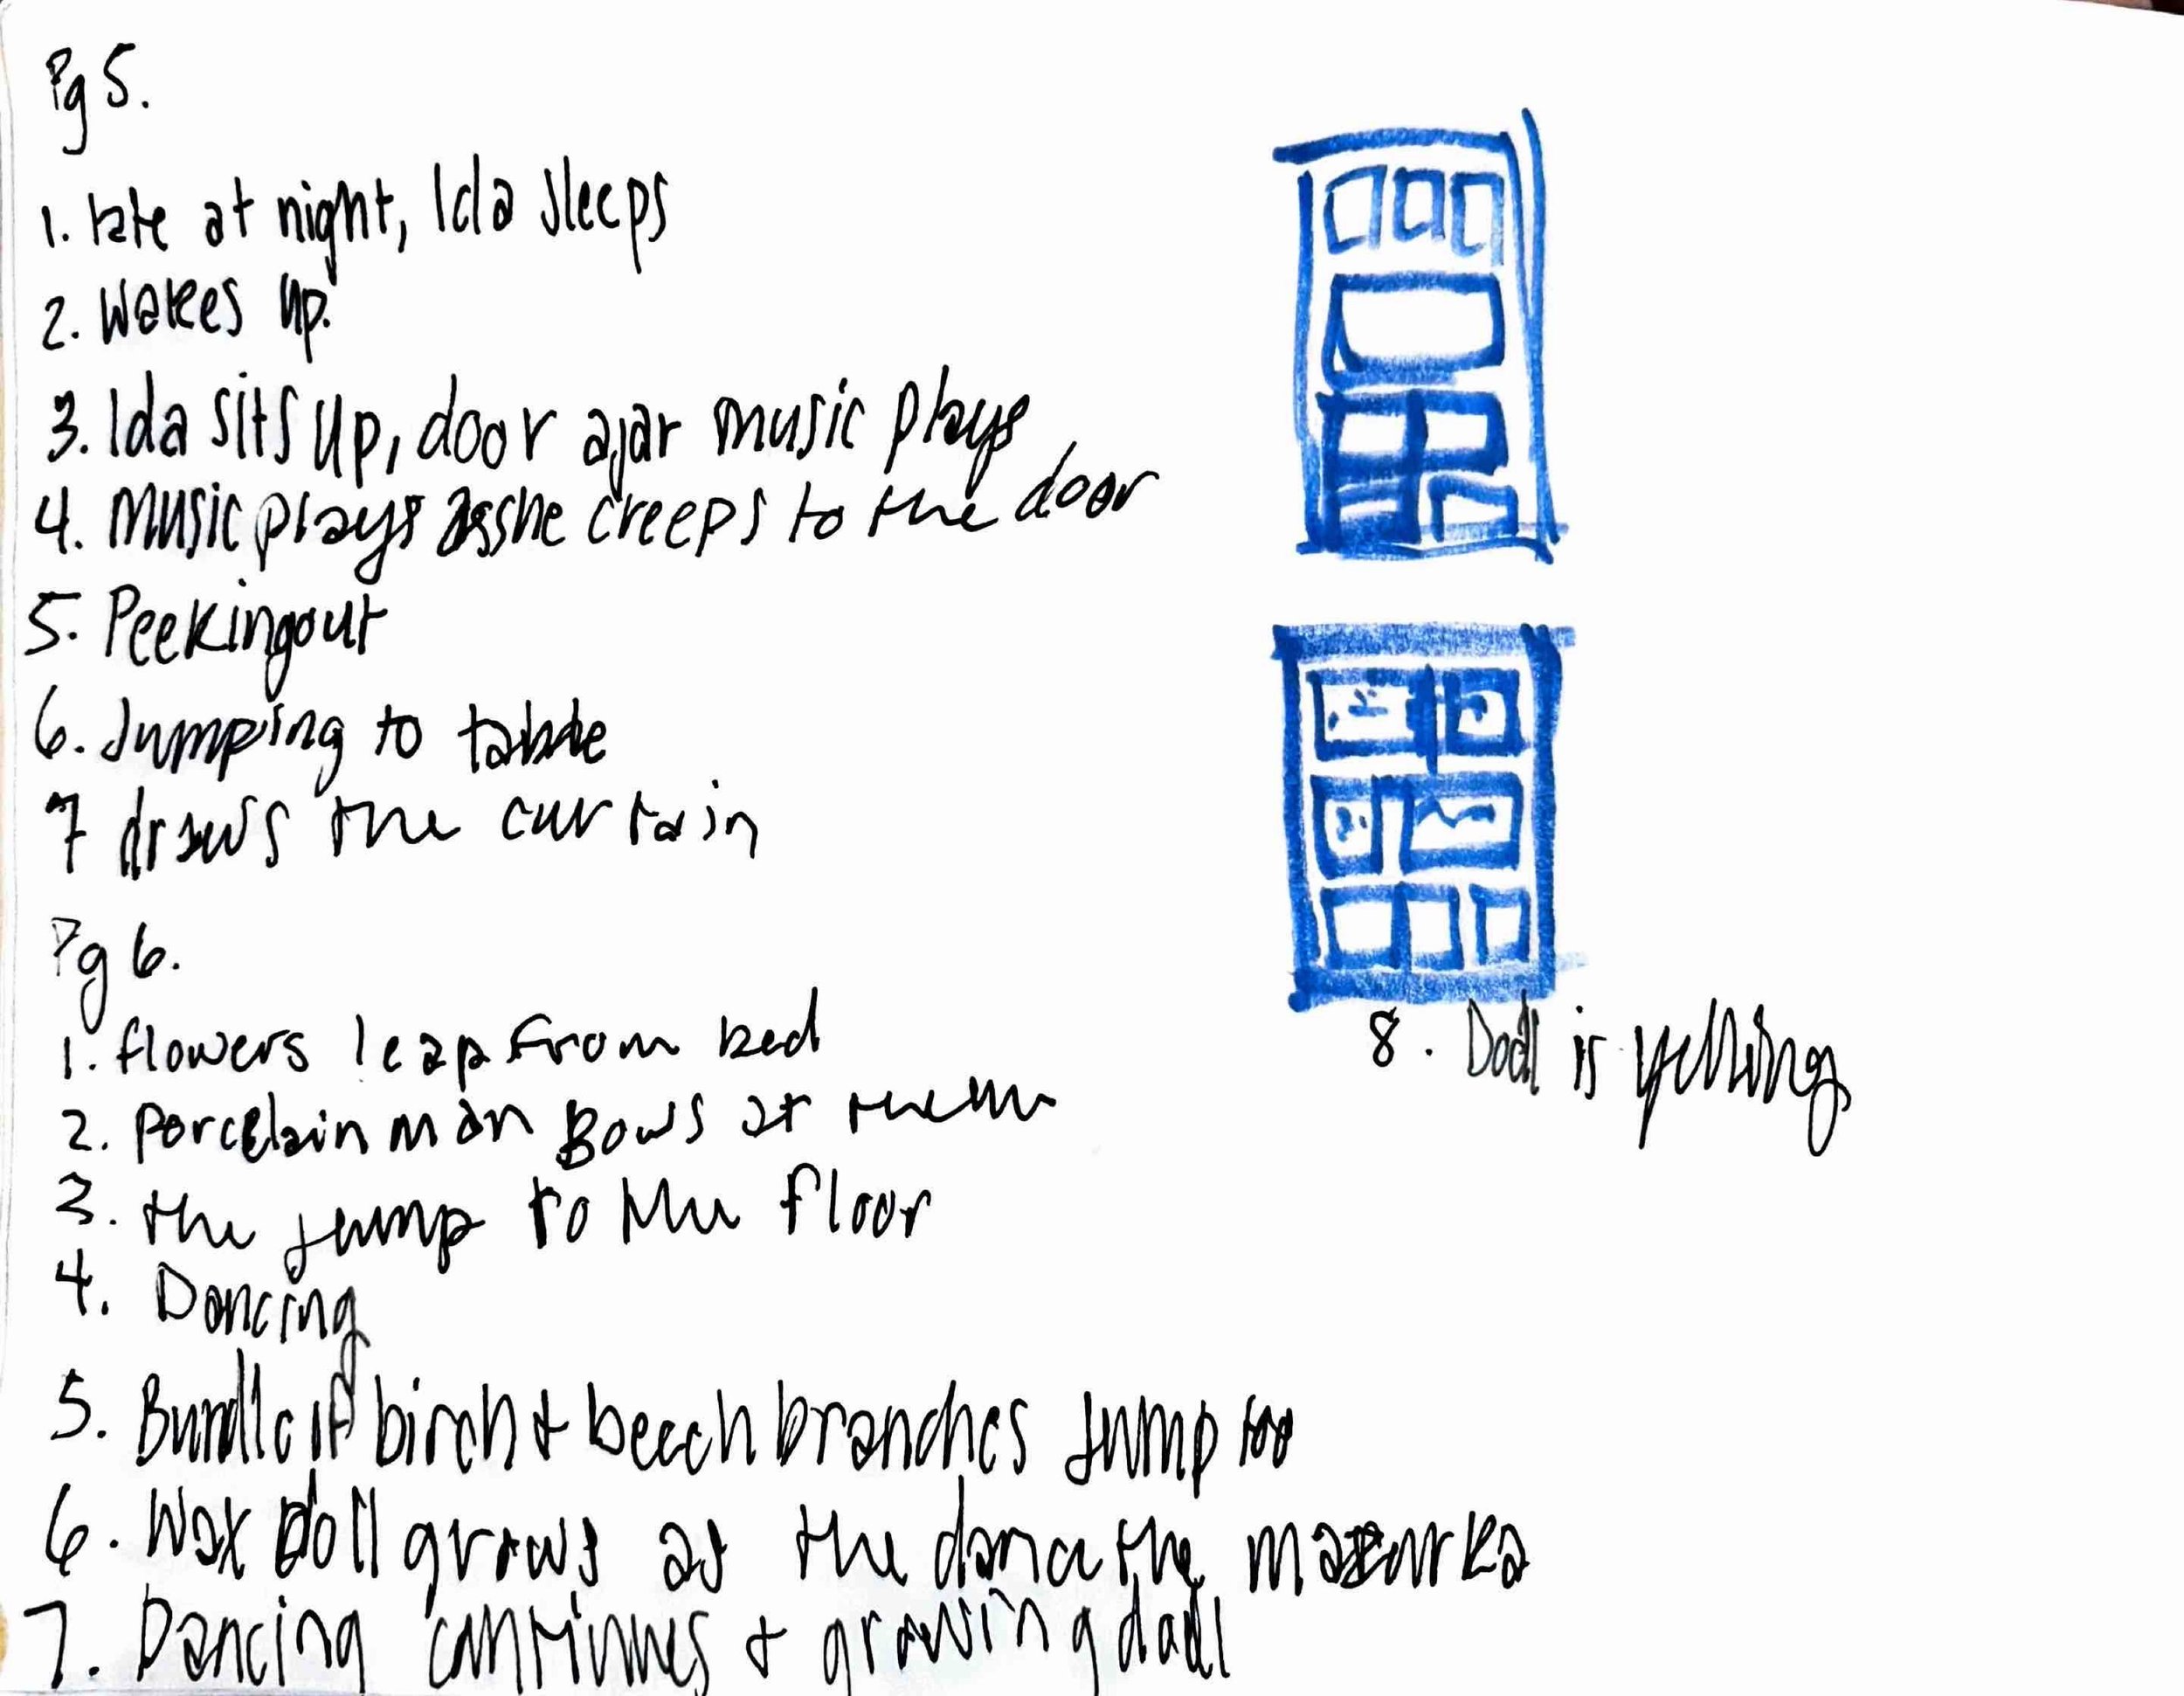 Pg 5.
1. late at night, Ida sleeps
2. Wakes up.
3. Ida sits up, door ajar music plays
4. Music plays as she creeps to the door
5. Peeking out
6. Jumping to table
7 draws the curtain
Pg 6.
1. flowers leap from bed
2. Porcelain man Bows at them
3. the jump to the floor
4. Dancing
5. Bundle of birch + beech branches jump too
6. Wax Doll grows as the dance the mazurka
7. Dancing continues + growing doll
8. Doll is yelling